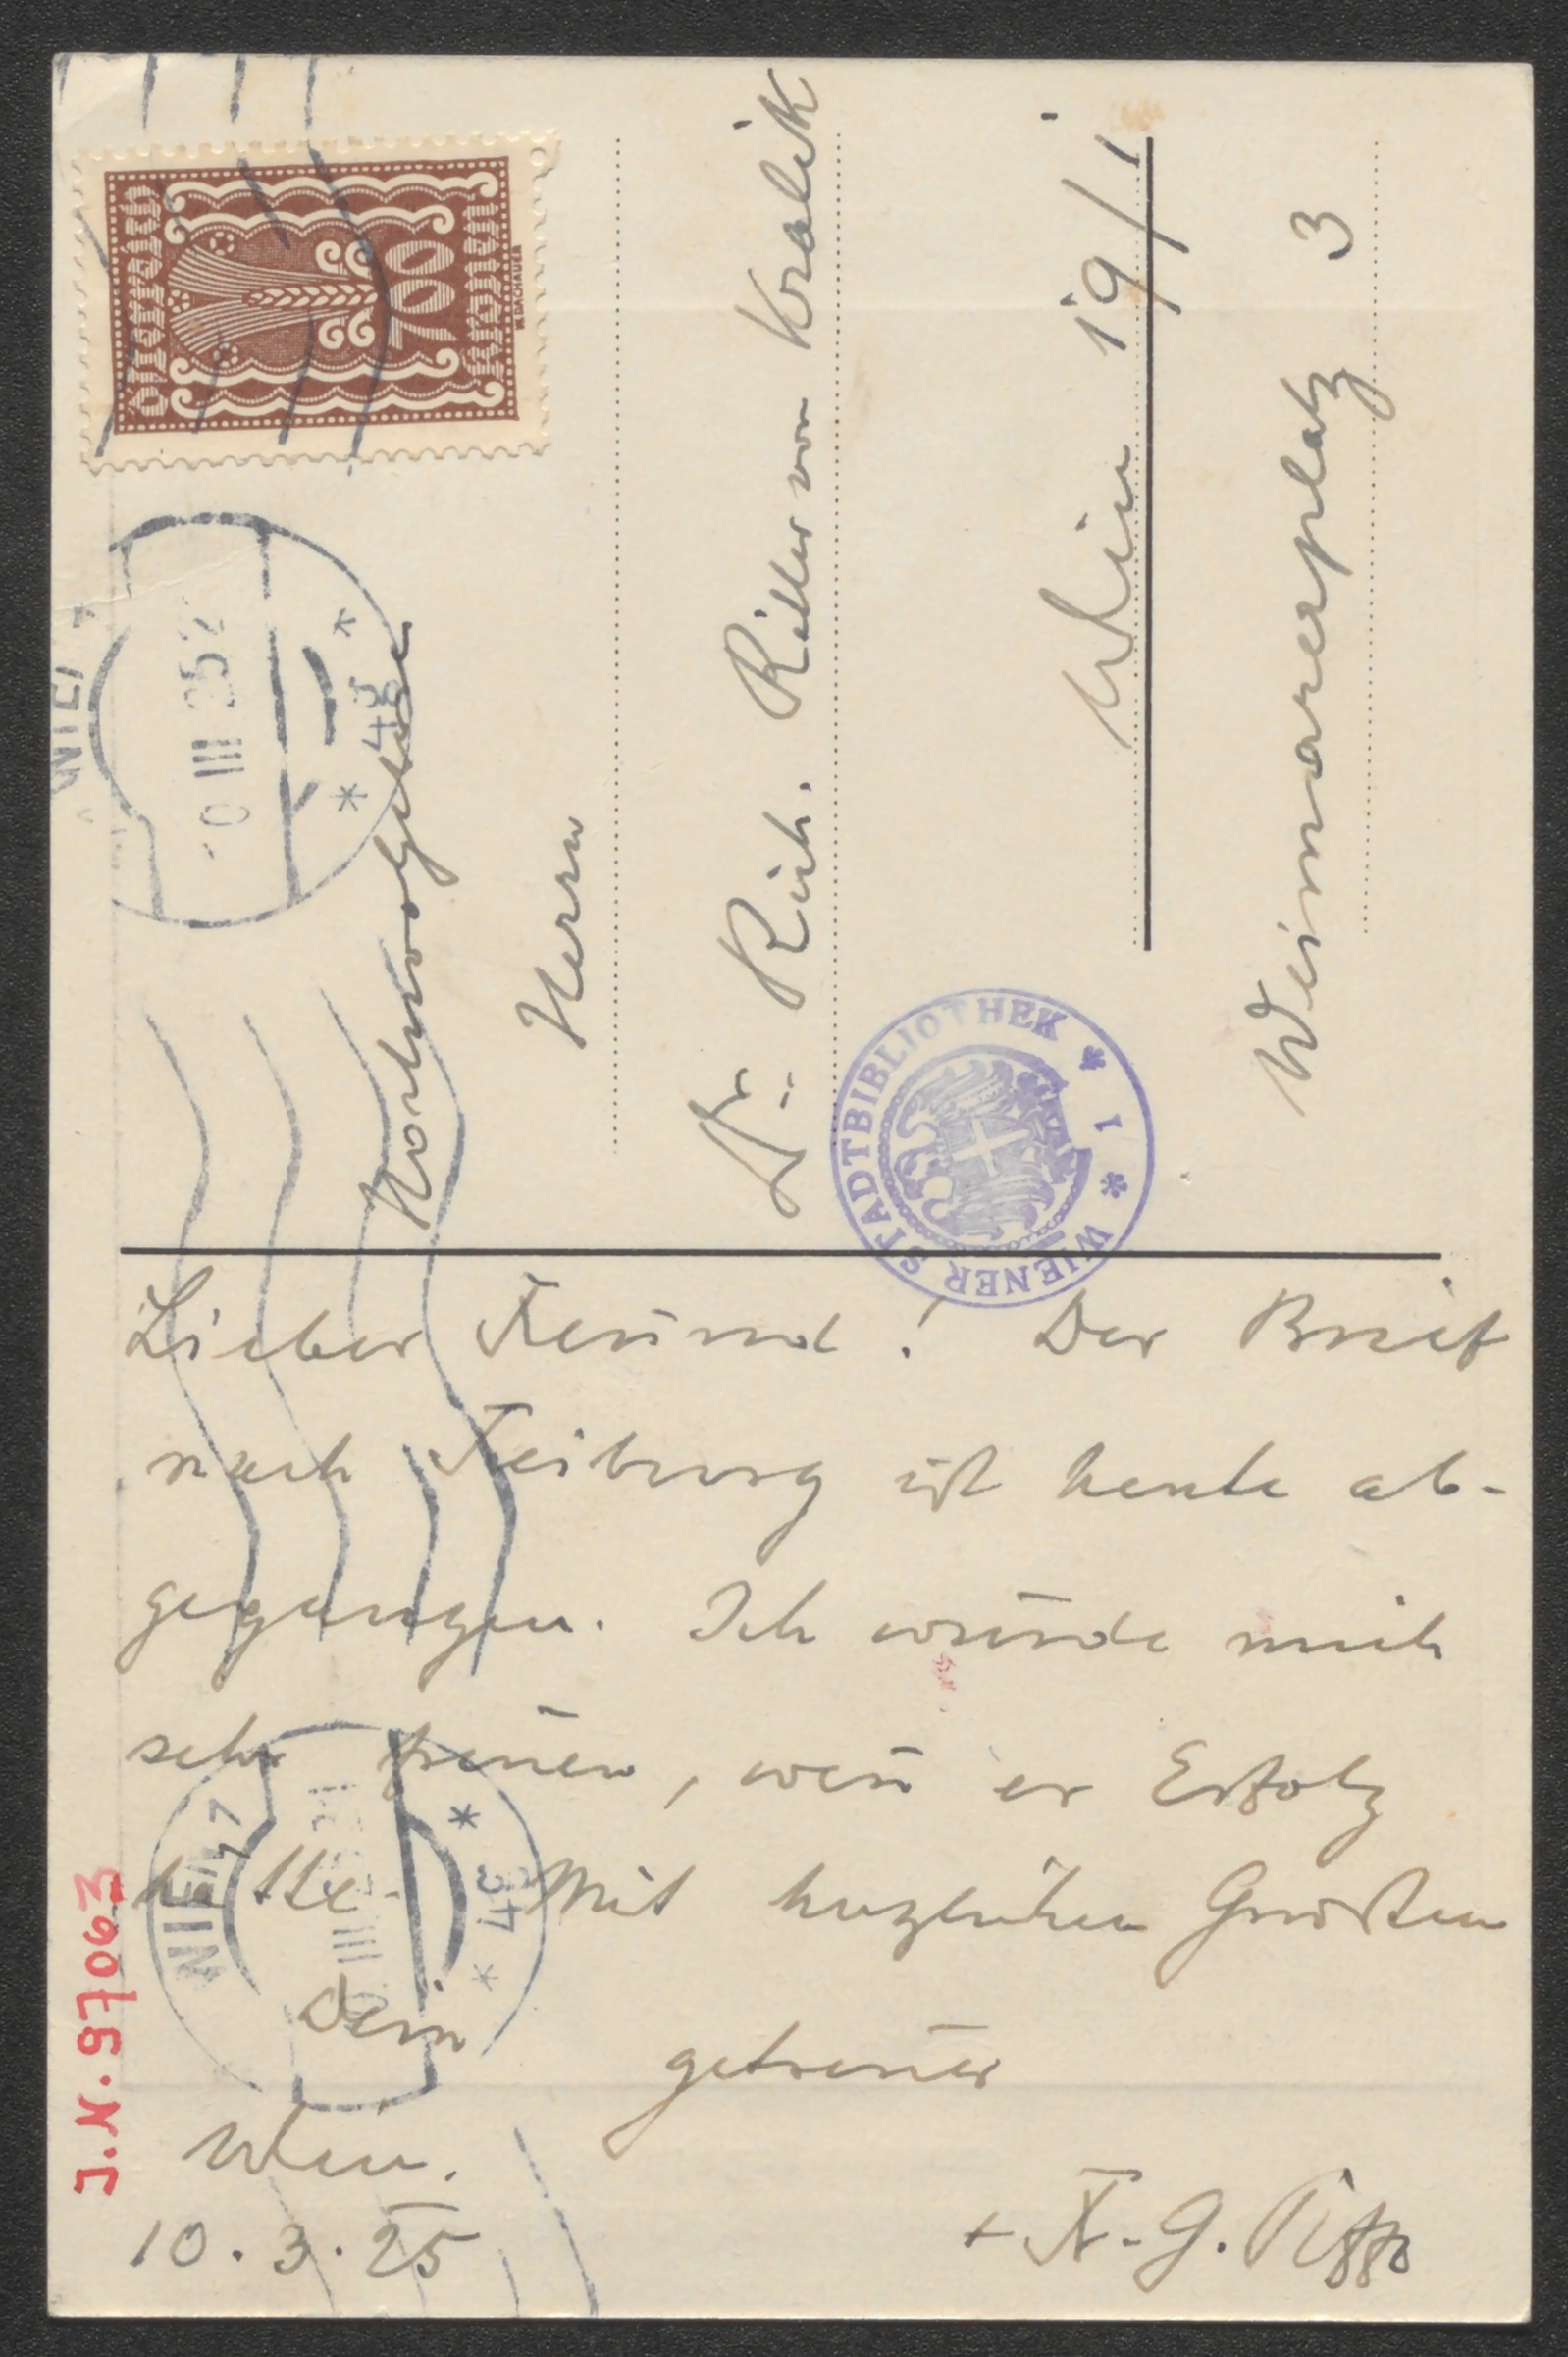 Österreich
700
Kronen
W. DACHAUER
WIEN
III 25
* 48 *
Hochwohlgeboren
Herrn
Dr. Rich. Ritter von Kralik
Wien 19/1
Weimarerplatz 3
WIENER STADTBIBLIOTHEK * 1 *
Lieber Freund! Der Brief
nach Freiburg ist heute ab-
gegangen. Ich würde mich
sehr freuen, wen̄ er Erfolg
hätte. Mit herzlichen Grüßen
Dein
getreuer
Wien.
10.3.25
+ F. G. Piffl
WIEN
III
* 48 *
J.N. 97063